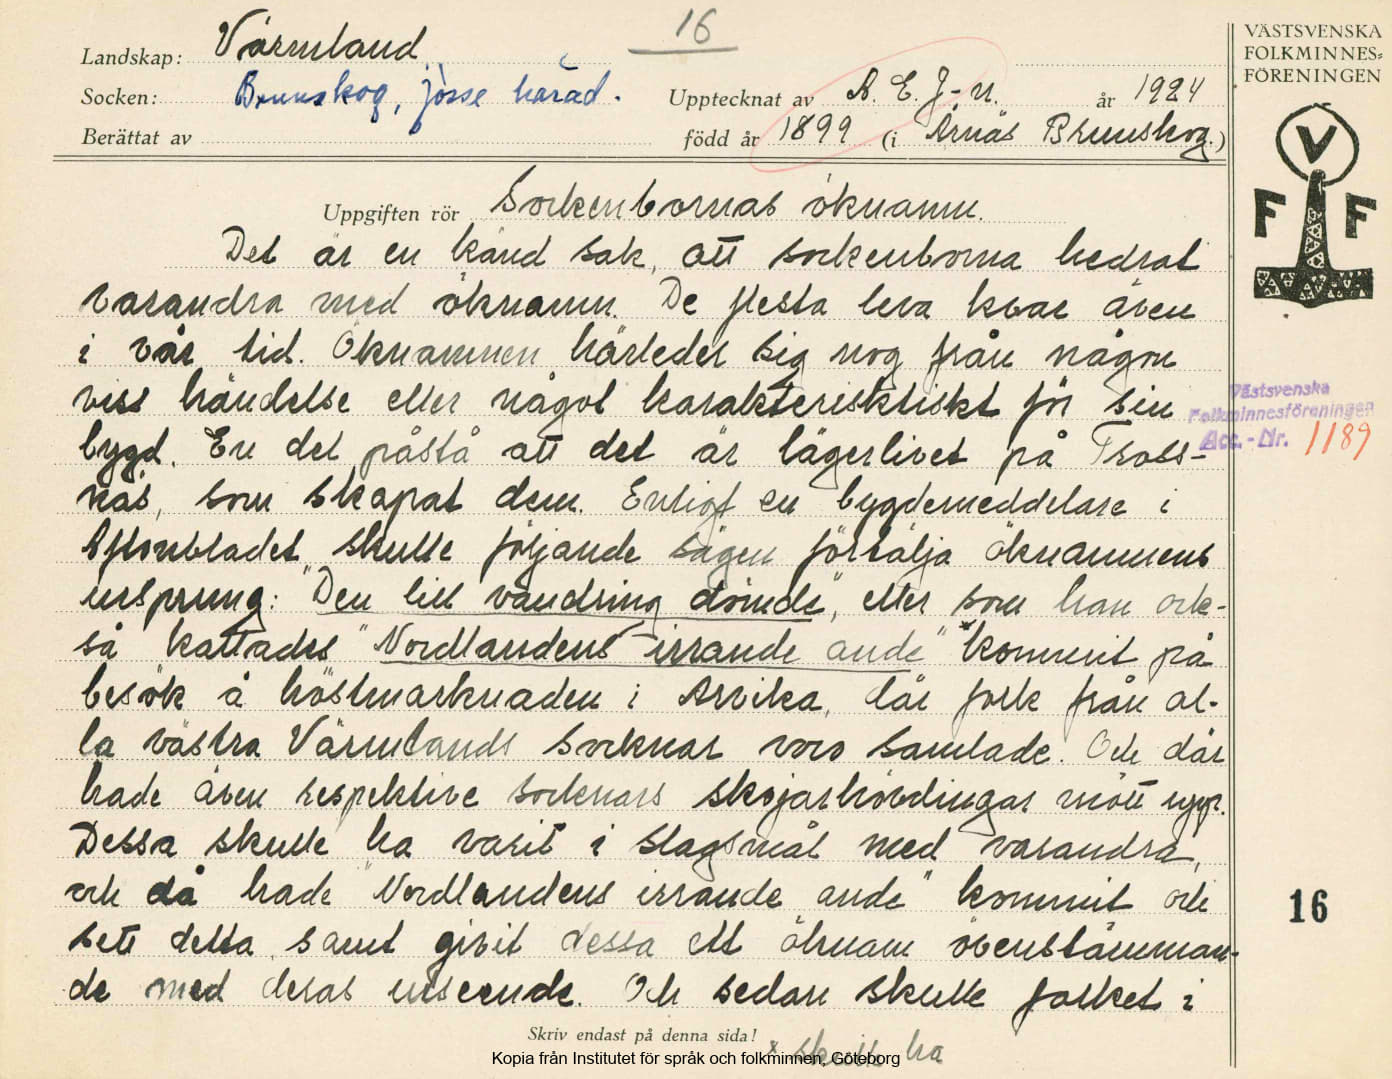 16
Landskap: Värmland
Socken: Brunskog, Jösse härad.
Upptecknat av A. E. J-n. år 1924
Berättat av
född år 1899 (i Årnäs Brunskog.)
VÄSTSVENSKA
FOLKMINNES=
FÖRENINGEN
V
F F
Uppgiften rör Sockenbornas öknamn.
Det är en känd sak, att sockenborna hedrat
varandra med öknamn. De flesta leva kvar även
i vår tid. Öknamnen härledet sig nog från någon
viss händelse eller något karakteristiskt för sin
bygd. En del påstå att det är lägerlivet på Tross-
näs, som skapat dem. Enligt en bygdemeddelare i
Aftonbladet skulle följande sägen förtälja öknamnens
ursprung: "Den till vandring dömde", eller som han ock-
så kallades "Nordlandens irrande ande" x kommit på
besök å höstmarknaden i Arvika, där folk från al-
la västra Värmlands socknar voro samlade. Och där
hade även respektive socknars skojarhövdingar mött upp.
Dessa skulle ha varit i slagsmål med varandra,
och då hade "Nordlandens irrande ande" kommit och
sett detta samt givit dessa ett öknam överstämman-
de med deras utseende. Och sedan skulle folket i
Skriv endast på denna sida!
x skulle ha
Kopia från Institutet för språk och folkminnen, Göteborg
Västsvenska
Folkminnesföreningen
Acc.-Nr. 1189
16